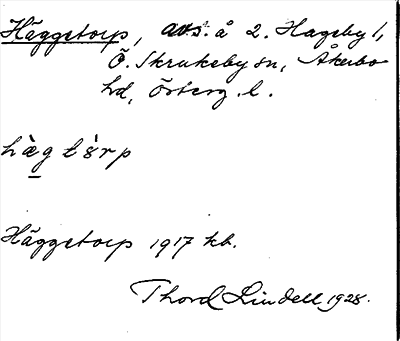 Häggetorp, avs. å 2. Hageby 1,
Ö. Skrukeby sn, Åkerbo
hd, Österg. l.
hæ̀g tɵ̀rp
Häggetorp 1917 kb.
Thord Lindell 1928.